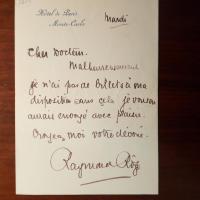 Hôtel de Paris
Monte-Carlo
Mardi
Cher Docteur.
Malheureusement
je n'ai pas de billets à ma
disposition sans cela je vous en
aurais envoyé avec plaisir.
Croyez moi votre dévoué.
Raymond